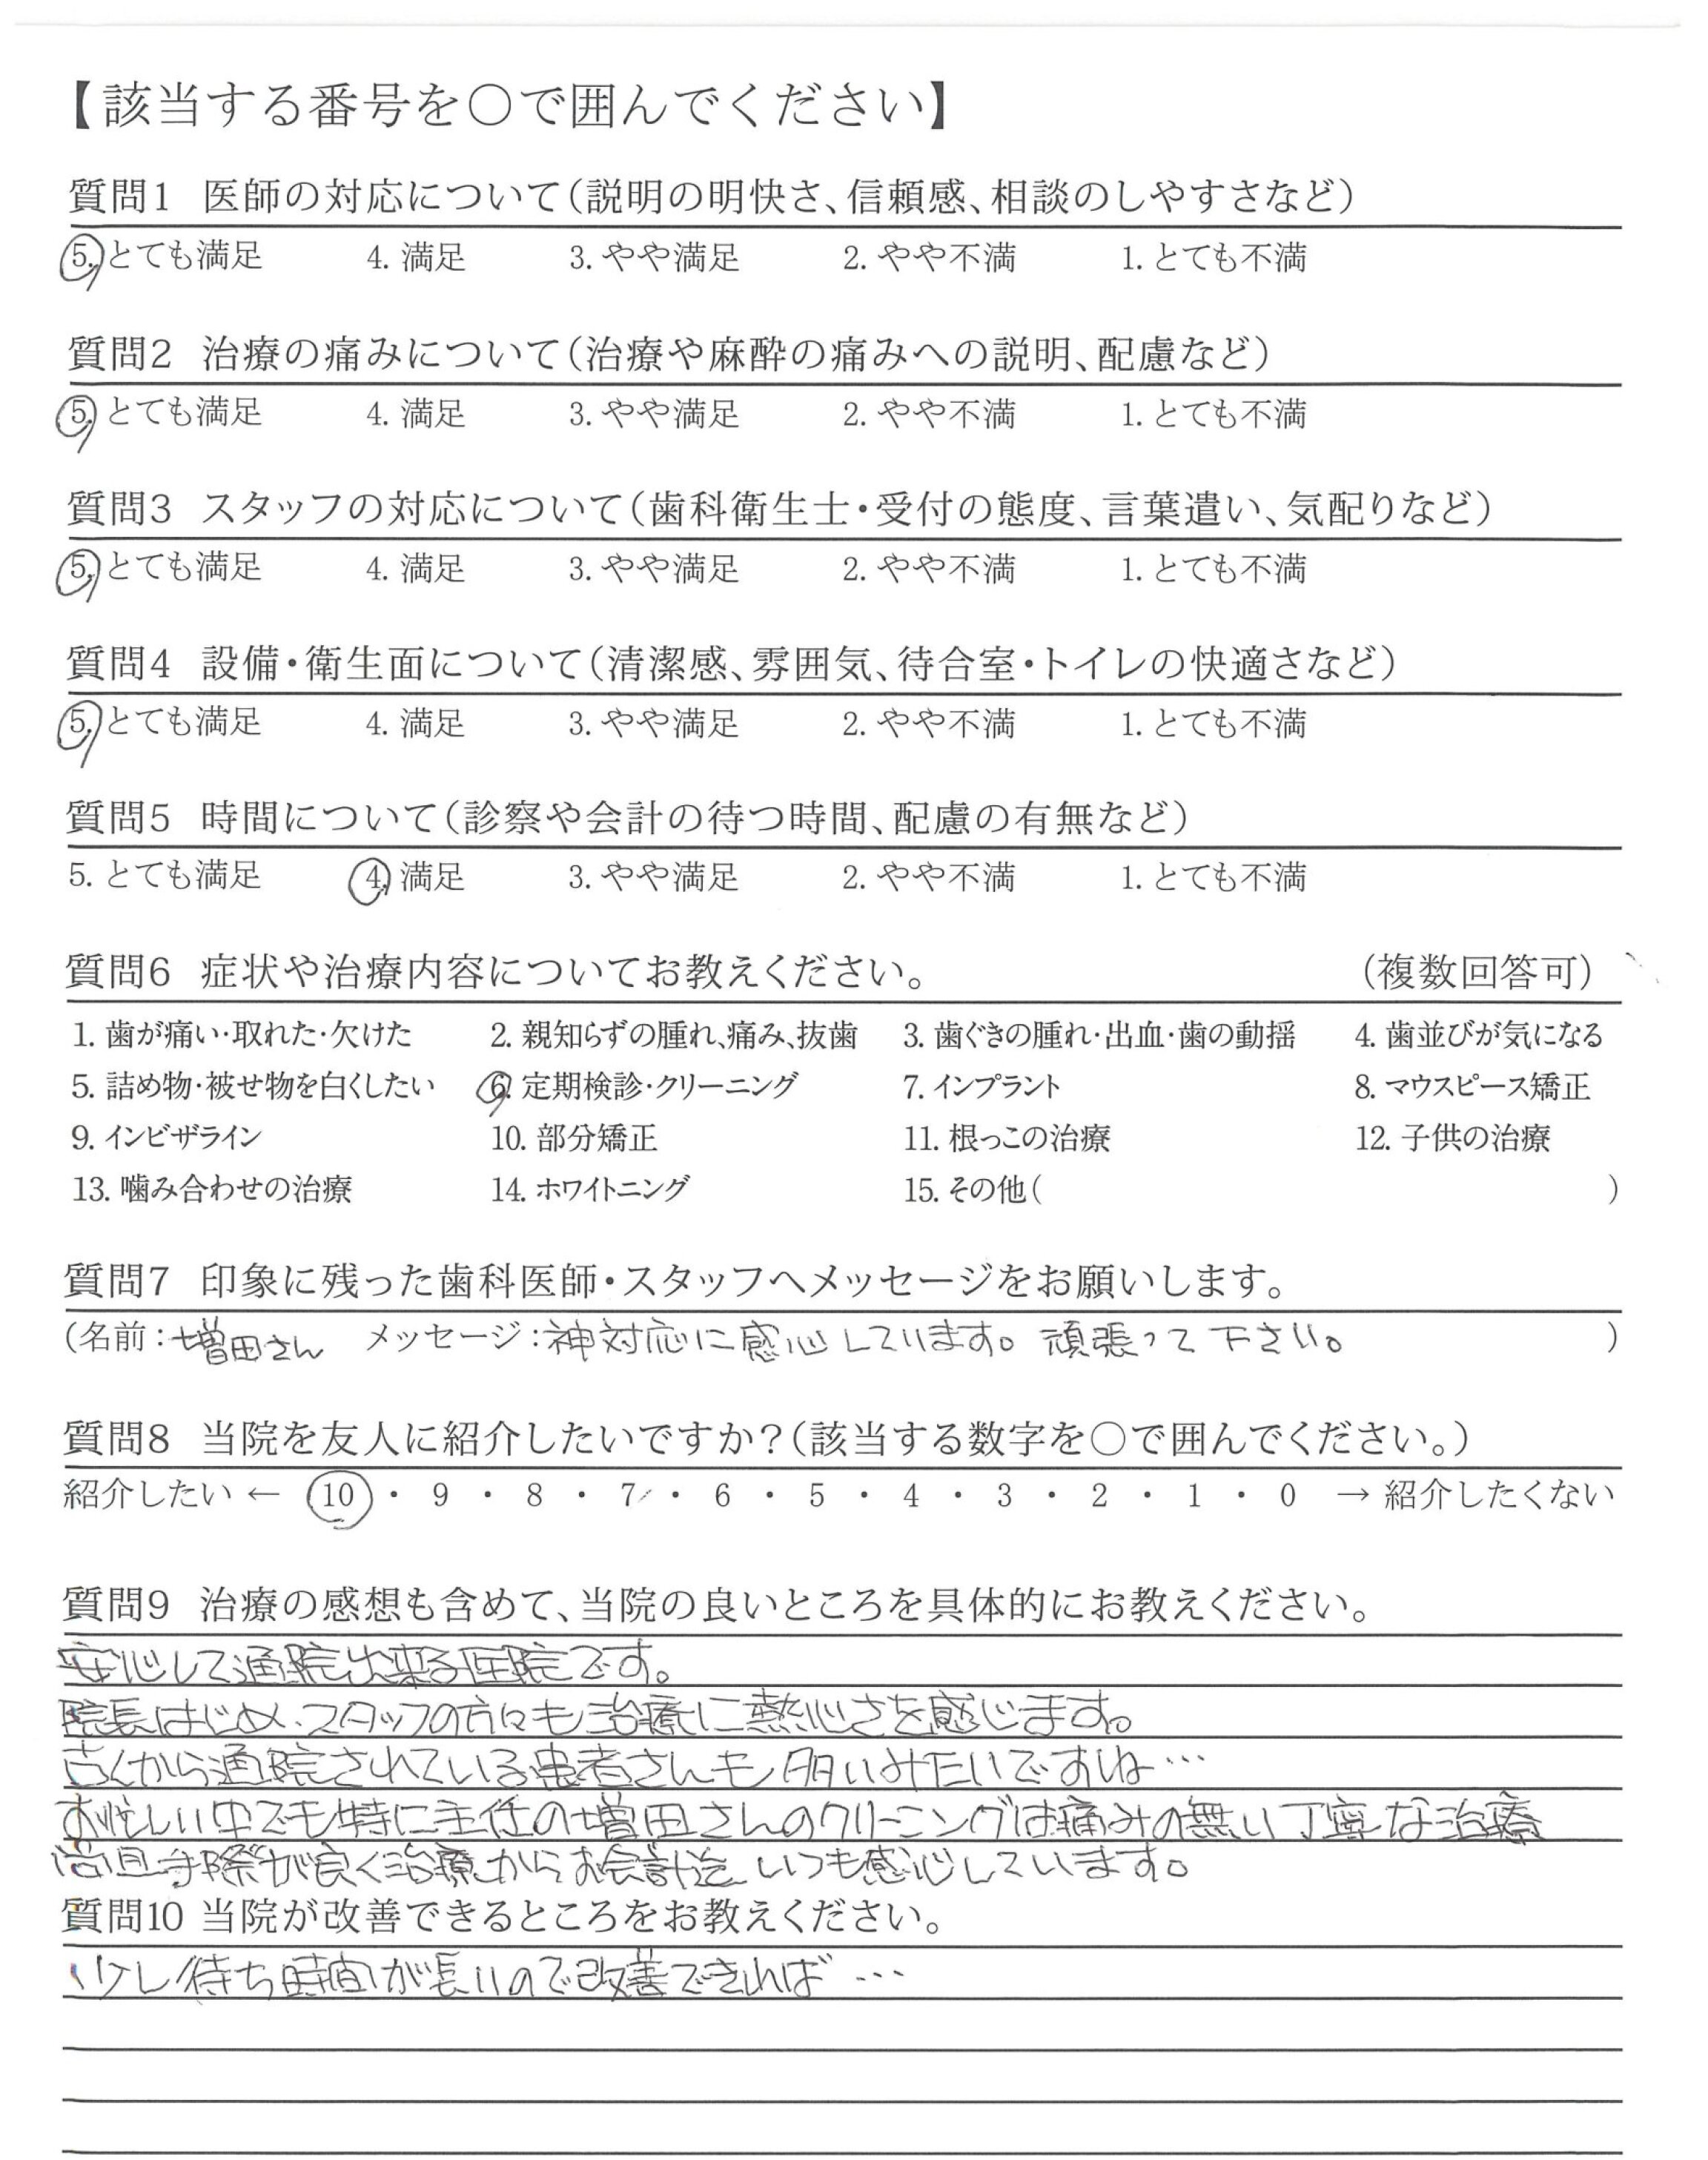 【該当する番号を○で囲んでください】
質問1 医師の対応について(説明の明快さ、信頼感、相談のしやすさなど)
5. とても満足 4. 満足 3. やや満足 2. やや不満 1. とても不満
質問2 治療の痛みについて(治療や麻酔の痛みへの説明、配慮など)
5. とても満足 4. 満足 3. やや満足 2. やや不満 1. とても不満
質問3 スタッフの対応について(歯科衛生士・受付の態度、言葉遣い、気配りなど)
5. とても満足 4. 満足 3. やや満足 2. やや不満 1. とても不満
質問4 設備・衛生面について(清潔感、雰囲気、待合室・トイレの快適さなど)
5. とても満足 4. 満足 3. やや満足 2. やや不満 1. とても不満
質問5 時間について(診察や会計の待つ時間、配慮の有無など)
5. とても満足 4. 満足 3. やや満足 2. やや不満 1. とても不満
質問6 症状や治療内容についてお教えください。 (複数回答可)
1. 歯が痛い・取れた・欠けた 2. 親知らずの腫れ、痛み、抜歯 3. 歯ぐきの腫れ・出血・歯の動揺 4. 歯並びが気になる
5. 詰め物・被せ物を白くしたい 6. 定期検診・クリーニング 7. インプラント 8. マウスピース矯正
9. インビザライン 10. 部分矯正 11. 根っこの治療 12. 子供の治療
13. 噛み合わせの治療 14. ホワイトニング 15. その他( )
質問7 印象に残った歯科医師・スタッフへメッセージをお願いします。
(名前:増田さん メッセージ:神対応に感心しています。頑張って下さい。 )
質問8 当院を友人に紹介したいですか?(該当する数字を○で囲んでください。)
紹介したい ← 10 ・ 9 ・ 8 ・ 7 ・ 6 ・ 5 ・ 4 ・ 3 ・ 2 ・ 1 ・ 0 → 紹介したくない
質問9 治療の感想も含めて、当院の良いところを具体的にお教えください。
安心して通院出来る医院です。
院長はじめ、スタッフの方々も治療に熱心さを感じます。
古くから通院されている患者さんも多いみたいですね…
お忙しい中でも特に主任の増田さんのクリーニングは痛みの無い丁寧な治療
手際が良く治療からお会計迄いつも感心しています。
質問10 当院が改善できるところをお教えください。
少し待ち時間が長いので改善できれば…